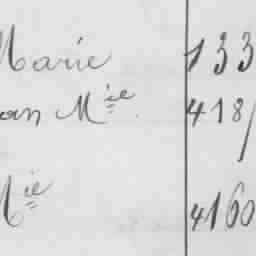 Marie 133
an Mie 418/
Mie 4160